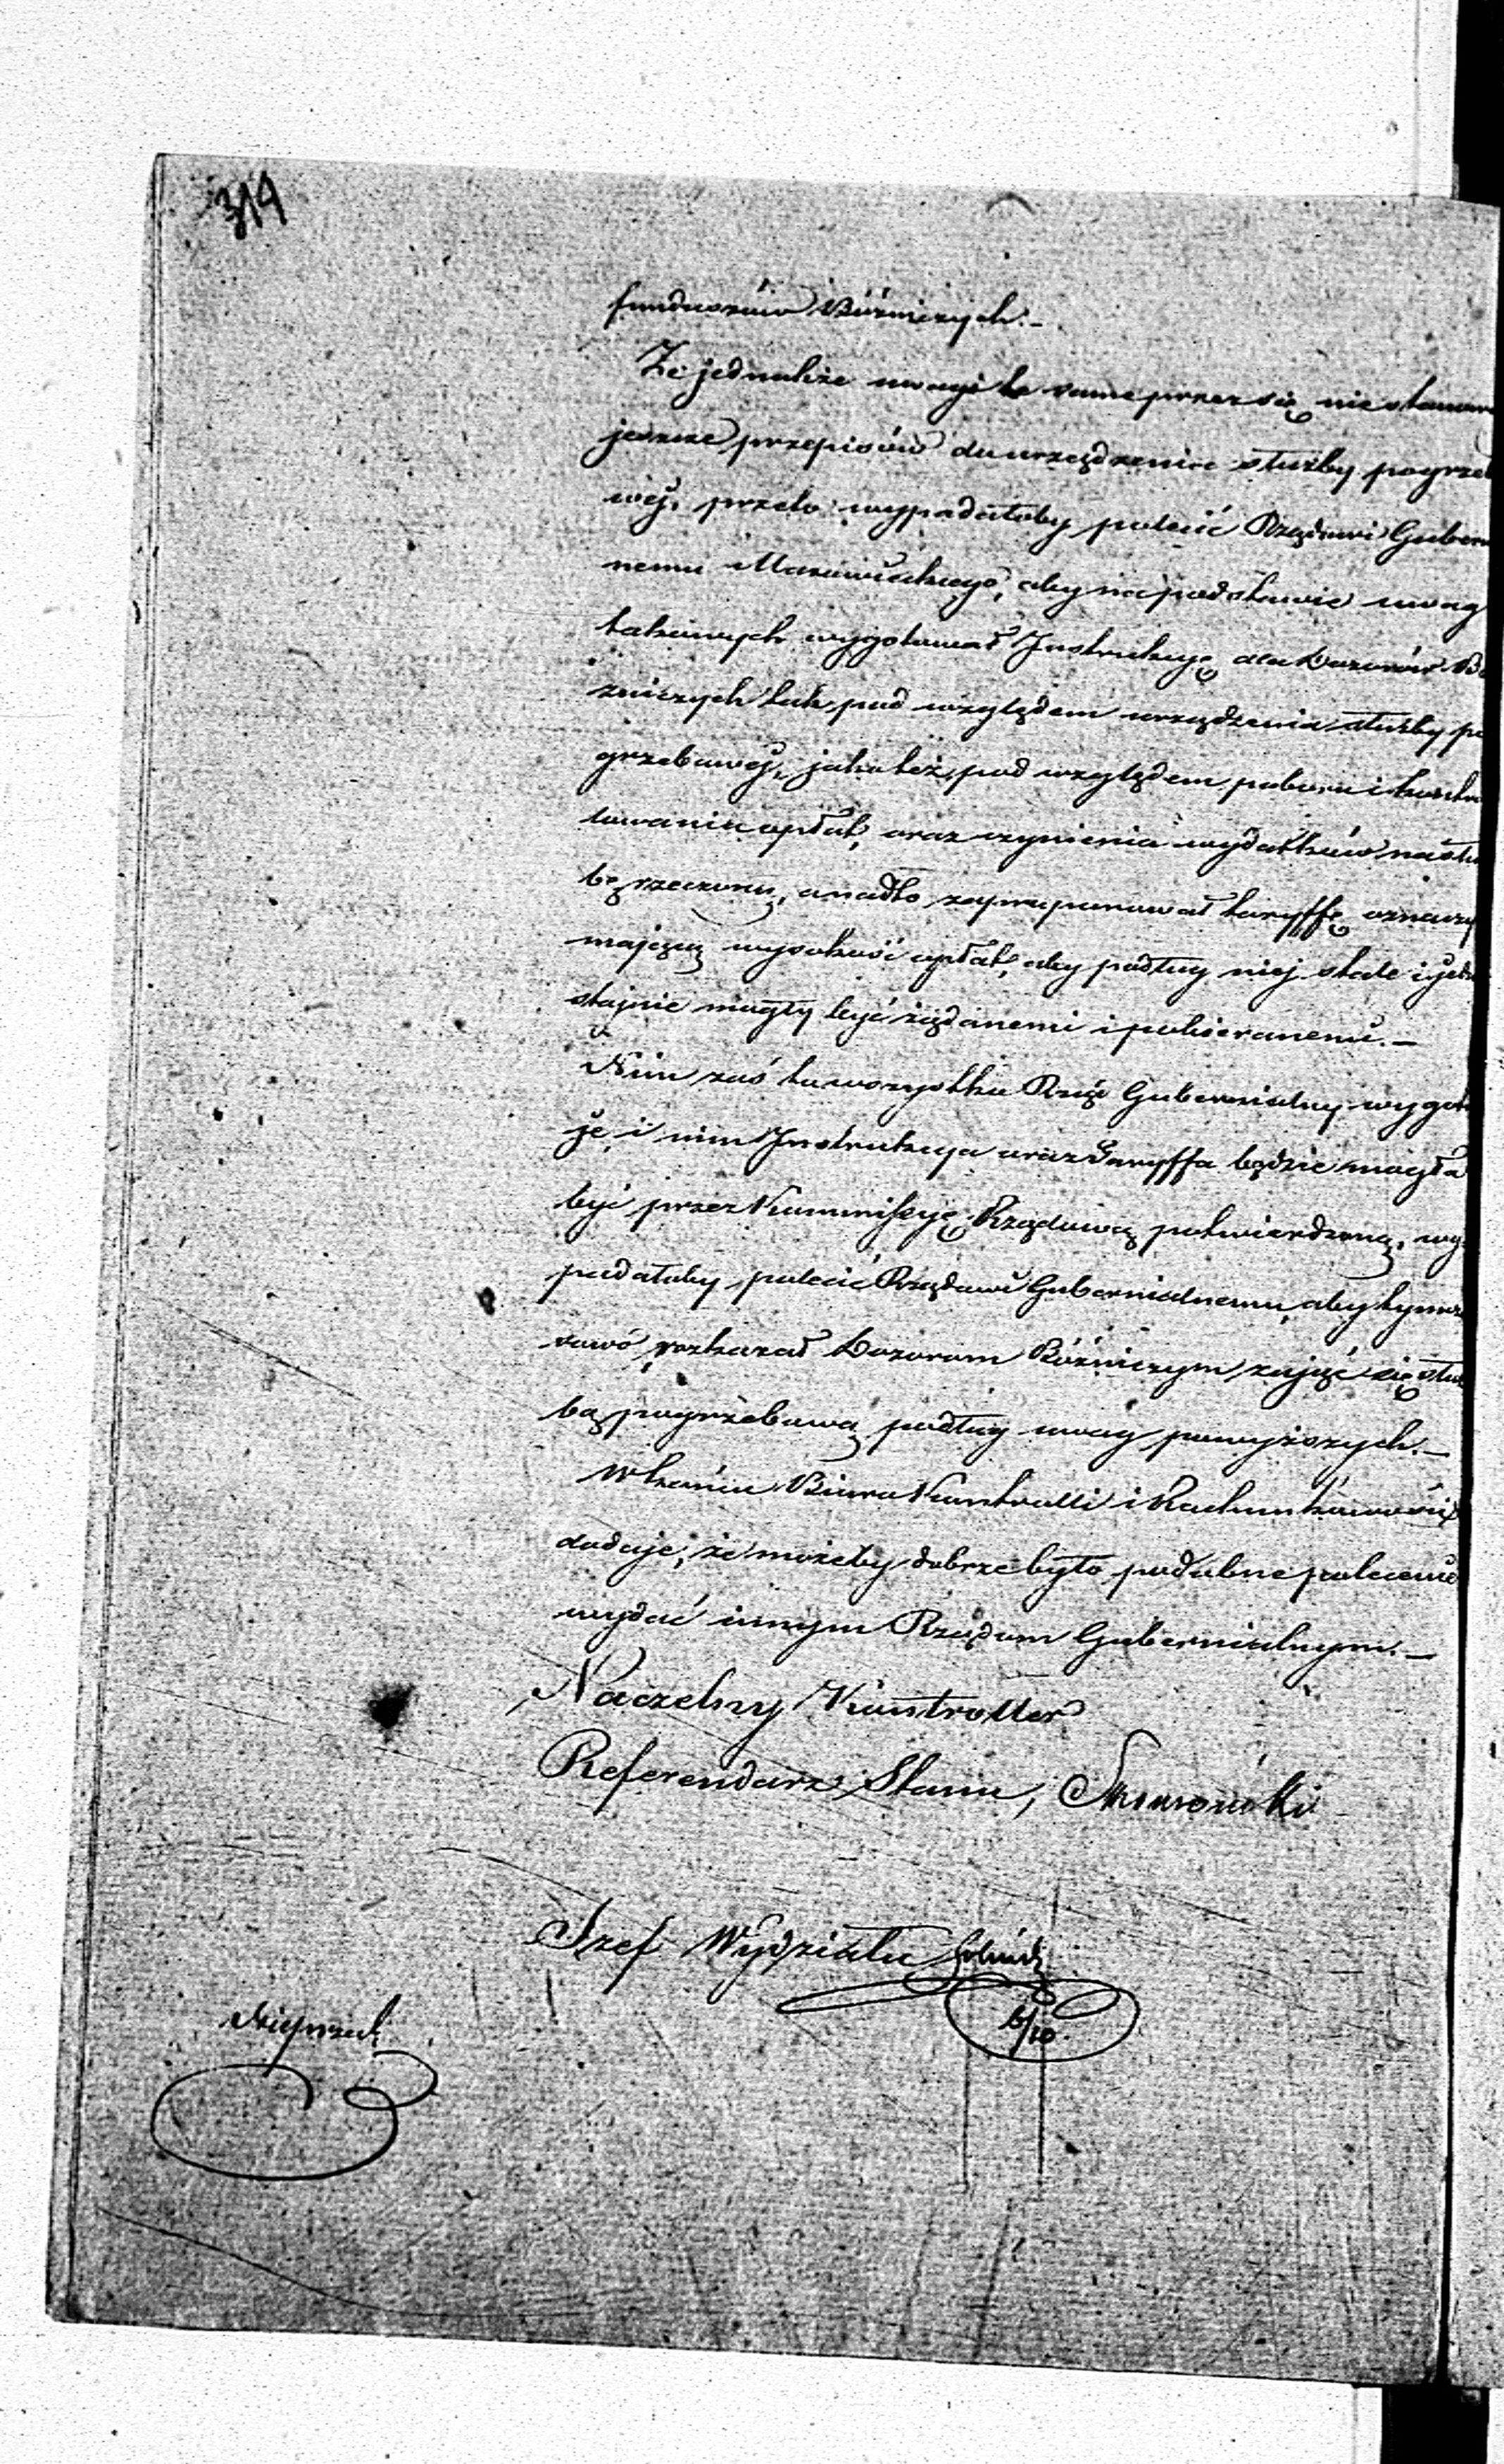 319
funduszów Bóźniczych.–
Że jednakże uwagi te same przez się nie stanow
jeszcze przepisów do urządzenia służby pogrzeb
wéj, przeto wypadałoby polecić Rządowi Gubern
nemu Mazowieckiego, aby na podstawie uwag
takowych wygotował Instrukcyę dla Dozorów Bó
zniczych tak pod względem urządzenia służby po
grzebowéj, jako też pod względem poboru i kontro
lowania opłat, oraz czynienia wydatków na słu
bę rzeczoną, a nadto zaproponował taryffę oznaczy
mającą wysokość opłat, aby podług niej stale i jedno
stajnie mogły być żądanemi i pobieranemi.–
Nim zaś to wszystko Rząd Gubernialny wygotu
je i nim Instrukcya oraz Taryffa będzie mogła
być przez Kommissyę Rządową potwierdzoną, wy
padałoby polecić Rządowi Gubernialnemu, aby tymcza
sowo rozkazał Dozorom Bóźniczym zająć się słu
bą pogrzebową podług uwag powyższych.–
W końcu Biuro Kontrolli i Rachunkowości
dodaje, że możeby dobrze było podobne polecenie
wydać innym Rządom Gubernialnym.–
Naczelny Kontroller
Referendarz Stanu,
Szef Wydziału
6/10.